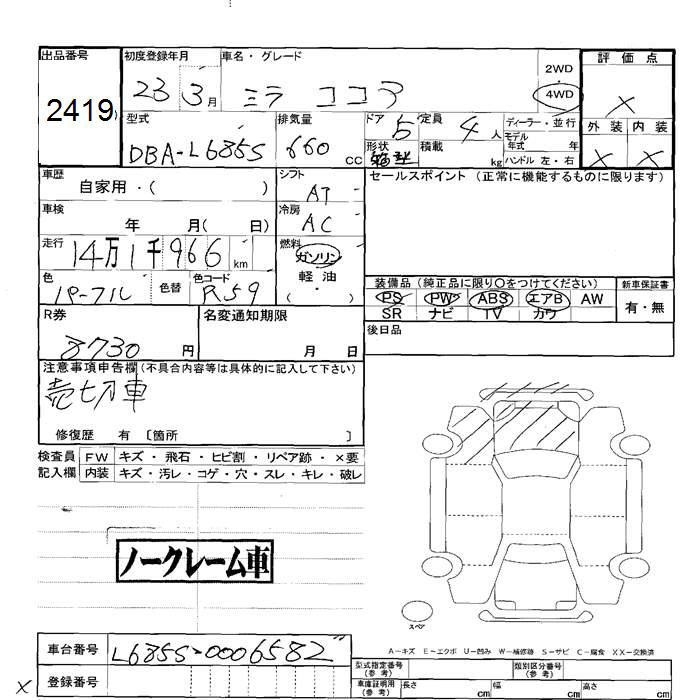 出品番号
2419
初度登録年月
23 3月
車名・グレード
ミラ ココア
2WD
4WD
評価点
X
外装 内装
X X
型式
DBA-L685S
排気量
660 cc
ドア 5
定員 4人
形状 箱型
積載 kg
ディーラー・並行
モデル年式 年
ハンドル 左・右
車歴
自家用・( )
シフト
AT
セールスポイント (正常に機能するものに限ります)
車検
年 月( 日)
冷房
AC
走行
14万1千966km
燃料
ガソリン
軽油
・
( )
色
パープル
色替
色コード
R59
装備品 (純正品に限り○をつけてください)
PS PW ABS エアB AW
SR ナビ TV カワ
新車保証書
有・無
R券
8730 円
名変通知期限
月 日
後日品
注意事項申告欄(不具合内容等は具体的に記入して下さい)
売切車
修復歴 有 〔箇所 〕
検査員記入欄
FW キズ・飛石・ヒビ割・リペア跡・×要
内装 キズ・汚レ・コゲ・穴・スレ・キレ・破レ
ノークレーム車
スペア
A－キズ E－エクボ U－凹み W－補修跡 S－サビ C－腐食 XX－交換済
車台番号
L685S-0006582
登録番号
X
型式指定番号(参考)
類別区分番号(参考)
車庫証明用(参考)
長さ cm
幅 cm
高さ cm